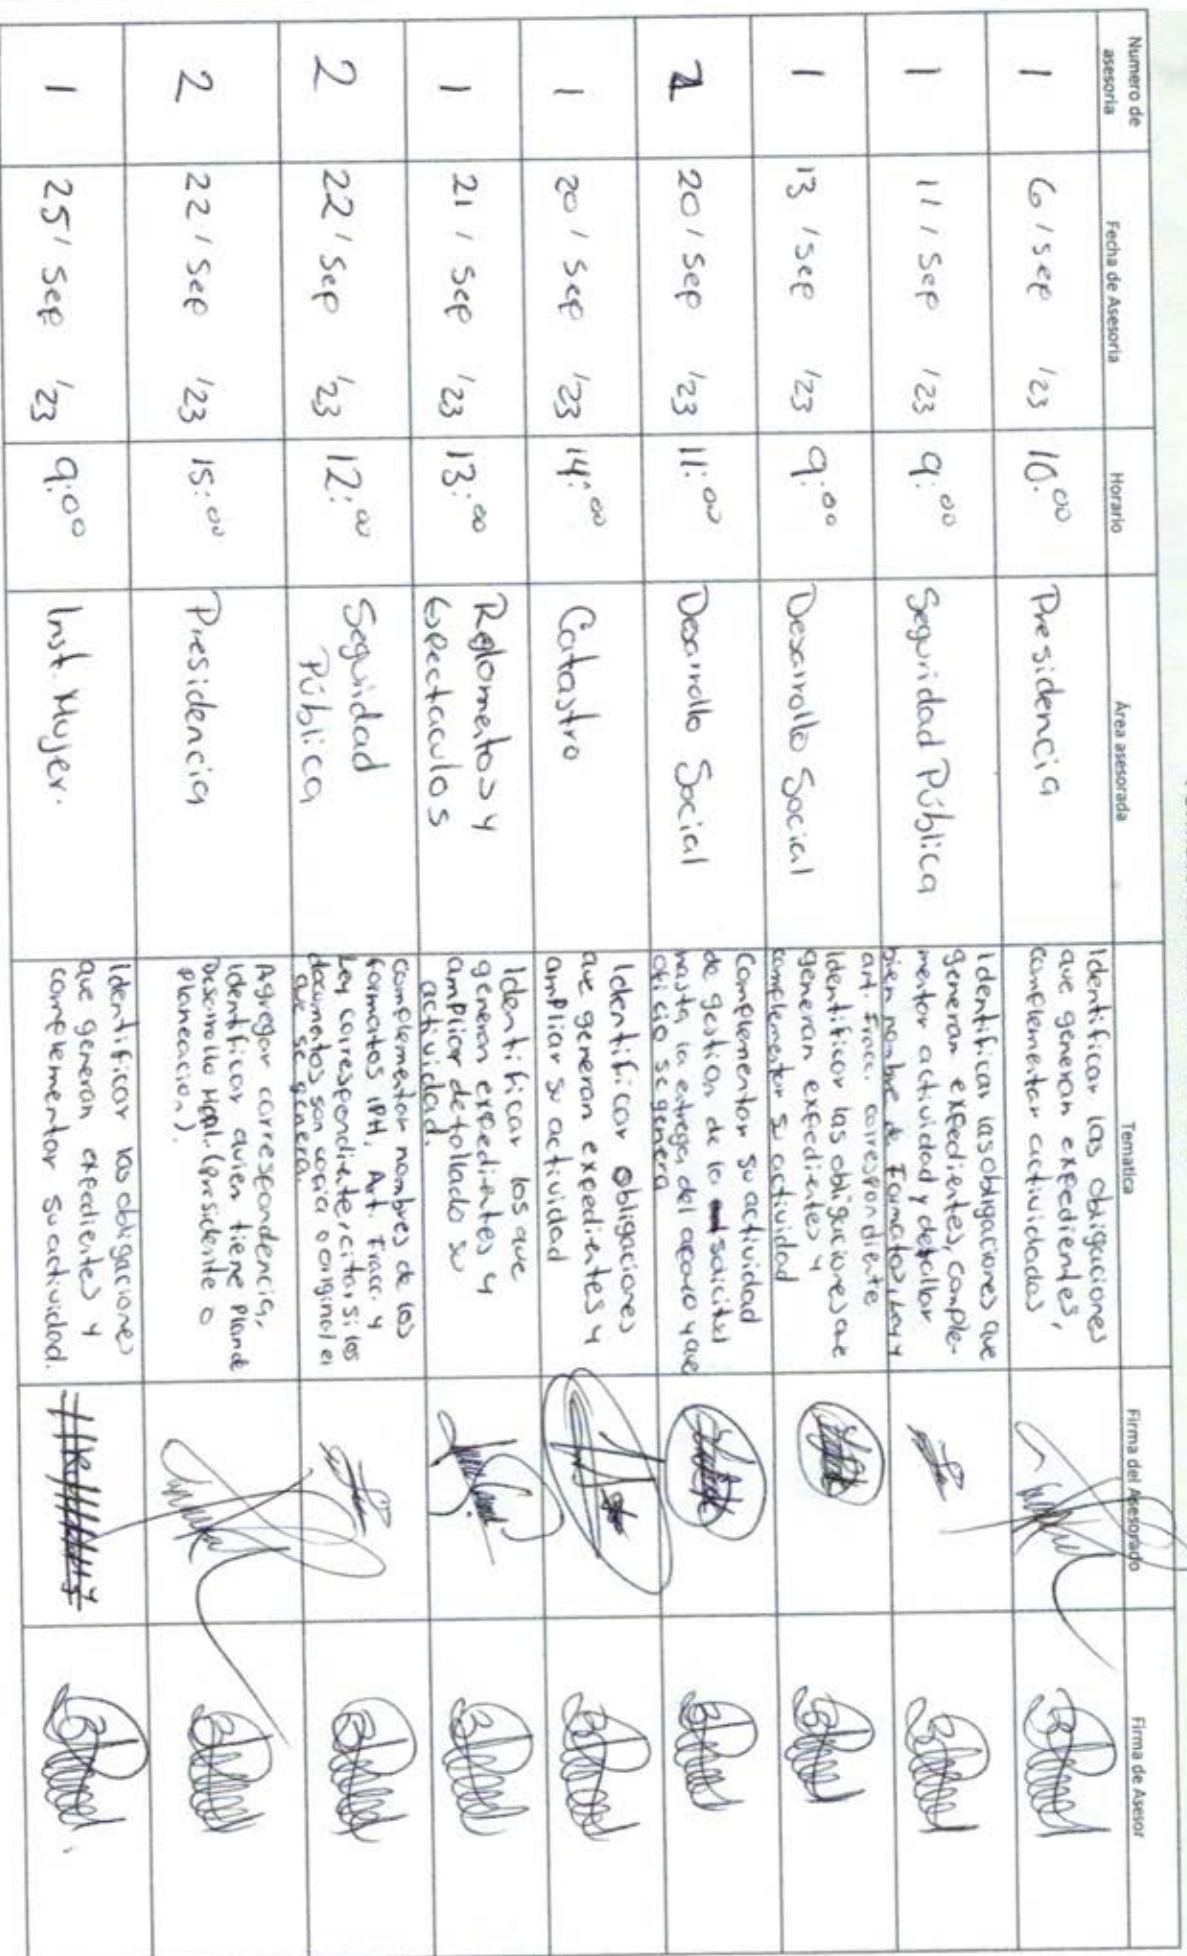 Numero de asesoria Fecha de Asesoria Horario Área asesorada Tematica Firma del Asesorado Firma de Asesor
1 6/sep/23 10:00 Presidencia
Identificar las obligaciones
que generan expedientes,
complementar actividades
1 11/sep/23 9:00 Seguridad Pública
Identificar las obligaciones que
generan expedientes, comple-
mentar actividad y detallar
bien nombre de Formatos, Ley y
art. Fracc. correspondiente
1 13/sep/23 9:00 Desarrollo Social
Identificar las obligaciones que
generan expedientes y
complementar su actividad
2 20/sep/23 11:00 Desarrollo Social
Complementar su actividad
de gestion de la solicitud
hasta la entrega del apoyo y que
oficio se genera
1 20/sep/23 14:00 Catastro
Identificar obligaciones
que generan expedientes y
ampliar su actividad
1 21/sep/23 13:00 Reglamentos y
Espectaculos
Identificar los que
generan expedientes y
ampliar detallado su
actividad.
2 22/sep/23 12:00 Seguridad
Pública
Complementar nombres de los
formatos IPH, Art. Fracc. y
Ley correspondiente, citar si los
documentos son copia o original el
que se genera.
2 22/sep/23 15:00 Presidencia
Agregar correspondencia,
identificar quien tiene Plan de
Desarrollo Mpal. (presidente o
planeacion).
1 25/sep/23 9:00 Inst. Mujer.
Identificar las obligaciones
que generan expedientes y
complementar su actividad.